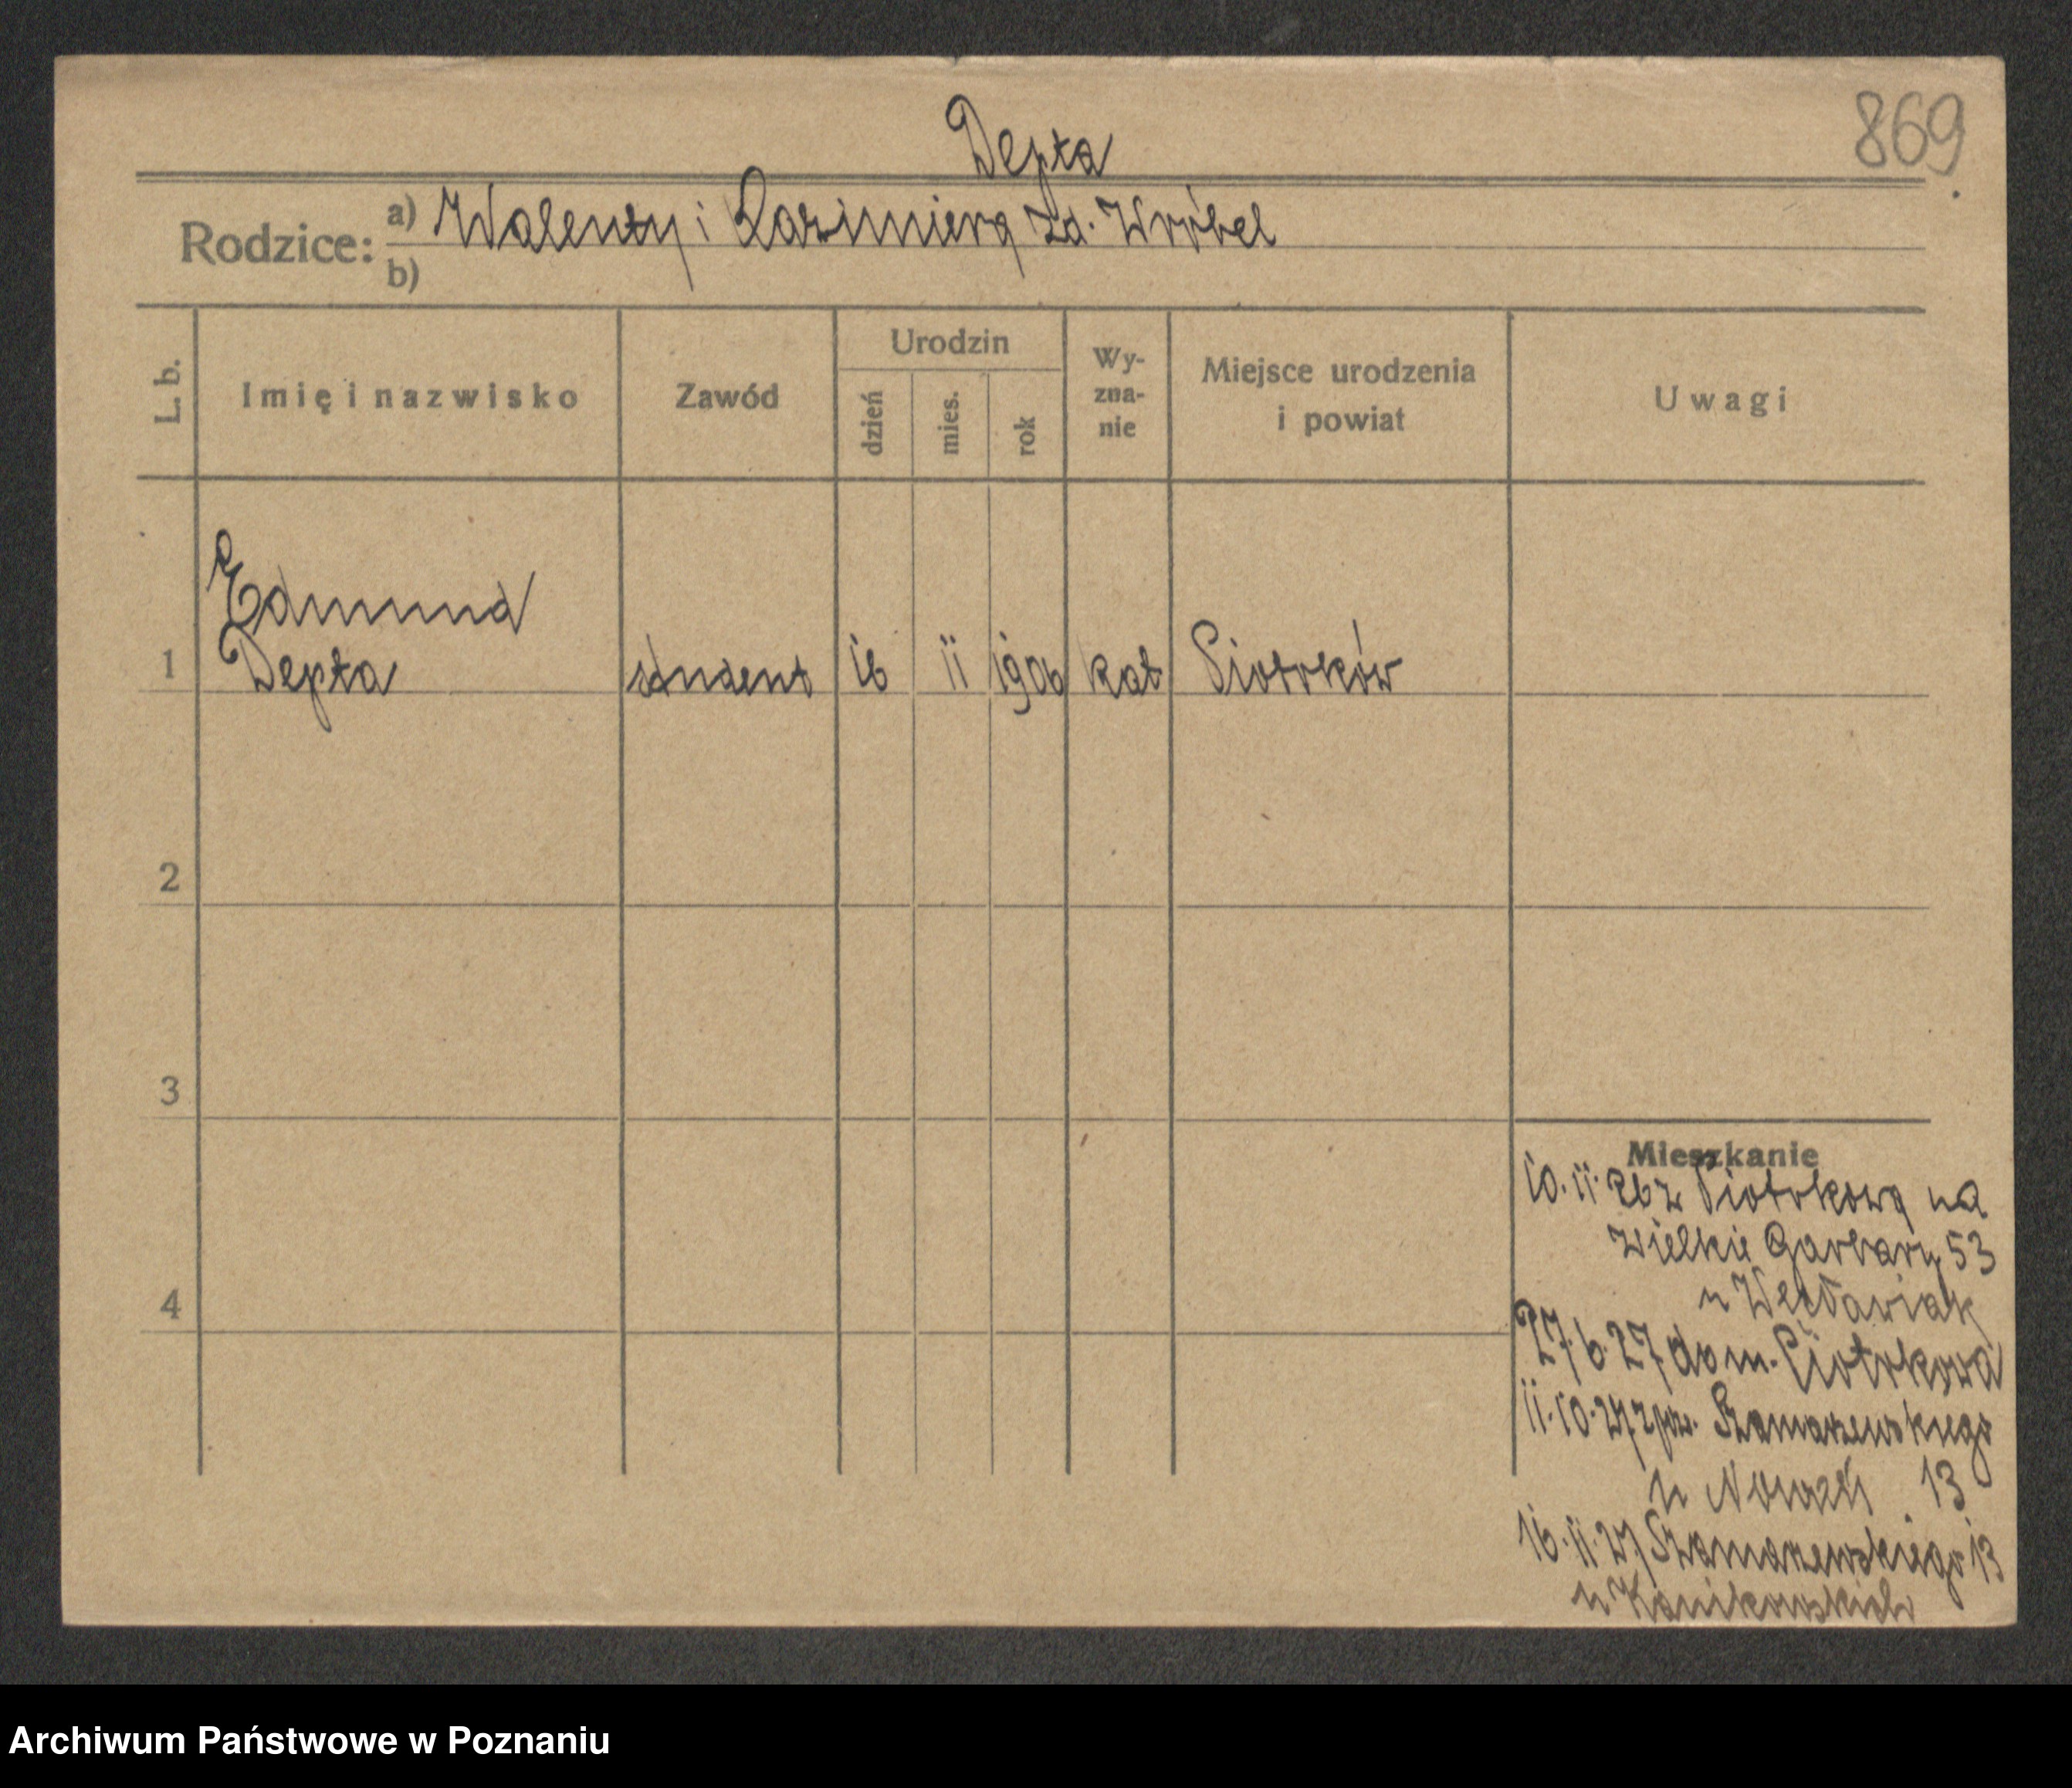 869
Depta
Rodzice: a) Walenty i Kazimiera zd. Wróbel
b)
L. b. Imię i nazwisko Zawód Urodzin dzień mies. rok Wy-zna-nie Miejsce urodzenia i powiat Uwagi
Edmund
1 Depta student 16 11 1906 kat Piotrków
2
3
Mieszkanie
10.11.26 z Piotrkowa na
Wielkie Garbary 53
4
27.6.27 do m. Piotrkowa
11.10.27 Szamarzewskiego
13
16.11.27 Szamarzewskiego 13
u
Archiwum Państwowe w Poznaniu